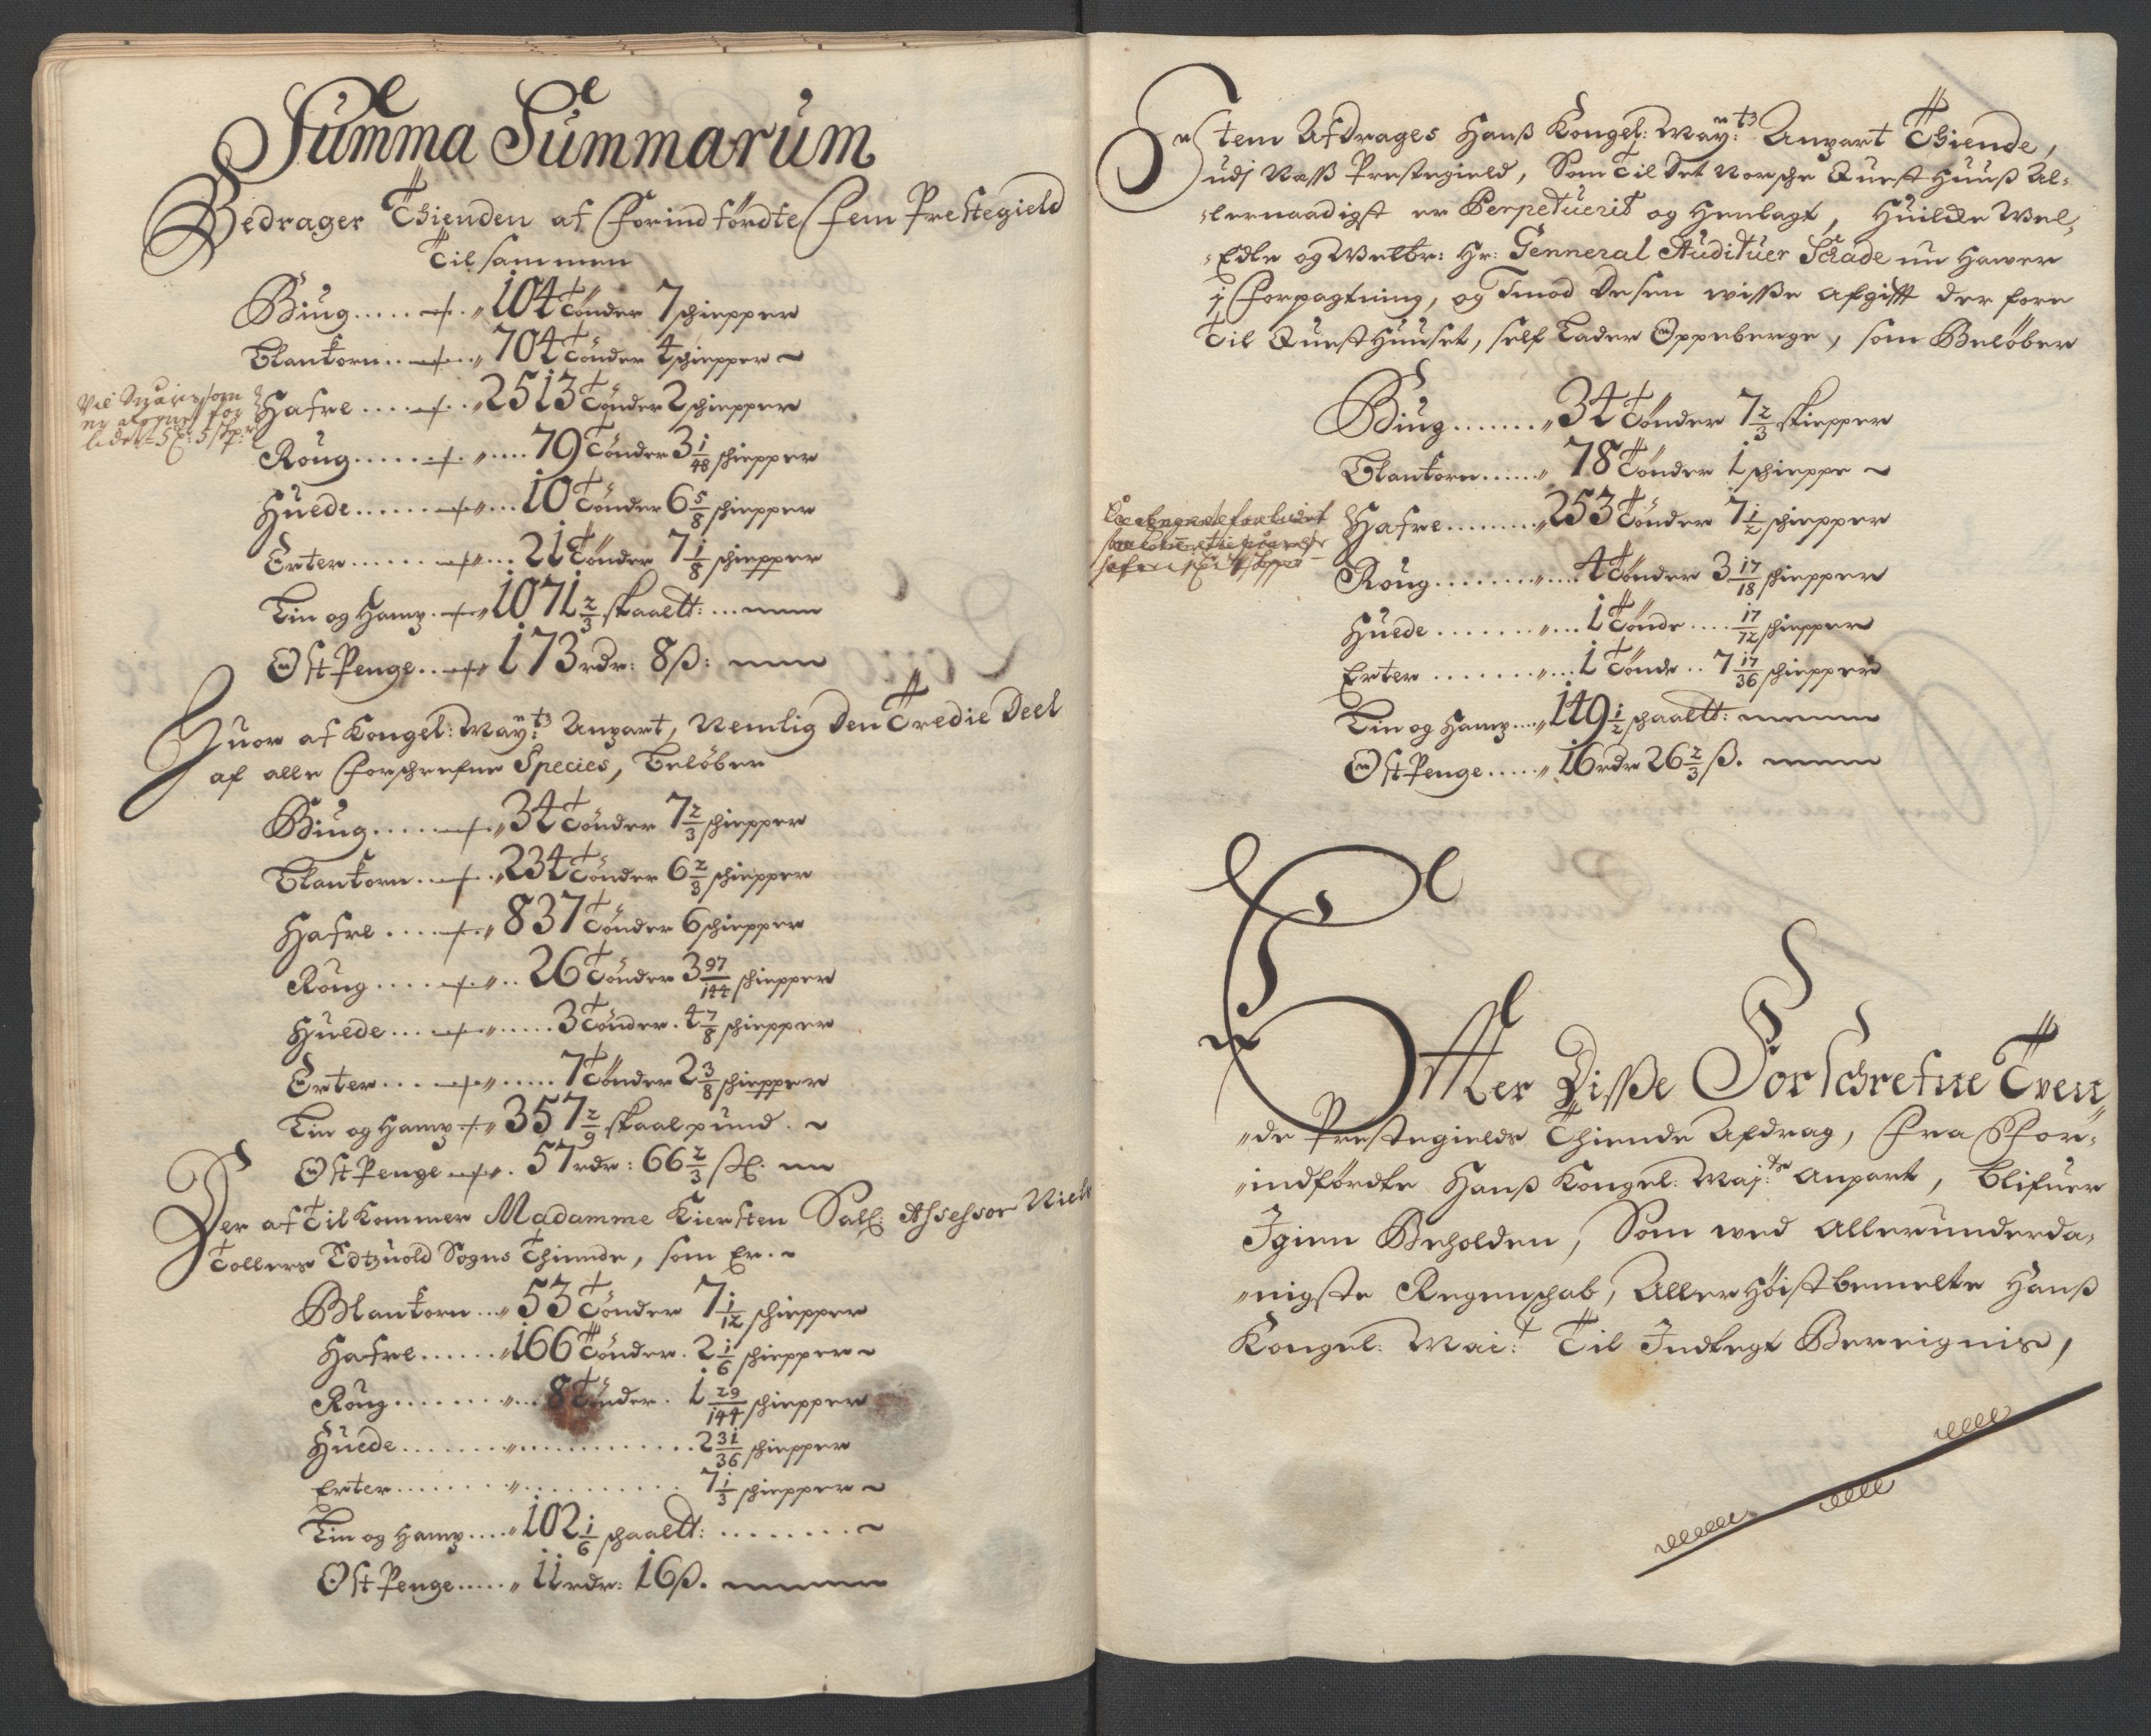 Summa Summarum
Bedrager Thienden af forindfördte fem Prestegield
Tilsammen
Biug..... 104 Tönder 7 schiepper
Blankorn.. 704 Tönder 4 schiepper
Hafre.... 2513 Tönder 2 schiepper
Roug...... 79 Tönder 3 1/48 schiepper
Huede...... 10 Tönder 6 5/8 schiepper
Erter...... 21 Tönder 7 1/8 schiepper
Lin og Hamp. 1071 2/3 skaaltt:
Ost Penge.. 173 rdr: 8 ß:
Huor af Kongel: Maytz Anpart, Nemlig den Tredie Deel
af alle forschrefne Species, Belöber
Biug..... 34 Tönder 7 2/3 schiepper
Blankorn.. 234 Tönder 6 2/3 schiepper
Hafre.... 837 Tönder 6 schiepper
Roug.... 26 Tönder 3 97/144 schiepper
Huede... 3 Tönder. 4 7/8 schiepper
Erter... 7 Tönder 2 3/8 schiepper
Lin og Hamp 357 2/9 skaalpund.
Ost Penge. 57 rdr: 66 2/3 ß.
Der af Tilkommer Madamme Kiersten Sal: Assessor Niels
Tollers Edtzuold Sogns Thiende, som Er.
Blankorn... 53 Tönder 7 1/12 schiepper
Hafre...... 166 Tönder. 2 1/6 schiepper
Roug....... 8 Tönder. 1 29/144 schiepper
Huede....... 2 31/36 schiepper
Erter....... 7 1/3 schiepper
Lin og Hamp.... 102 1/6 schaaltt:
Ost Penge..... 11 rdr: 16 ß.
Item Afdrages Hanß Kongel: Maytz Anpart Thiende,
udj Næss Prestegield, Som Til det Norsche Quest Huuß Al-
lernaadigst er Perpetuerit og Henlagt, Huilcke Wel-
Edle og Welbr: Hr: Genneral Audituer Schade nu Hawer
j Forpagtning, og Imod desen wisse afgifft der fore
Til Quest Huuset, self Lader Oppeberge, som Belöber
Biug....... 34 Tönder 7 2/3 skiepper
Blankorn...... 78 Tönder 1 schieppe
Hafre........ 253 Tönder 7 1/2 schiepper
Roug......... 4 Tönder 3 17/18 schiepper
Huede....... 1 Tönde.... 17/72 schiepper
Erter....... 1 Tönde.. 7 17/36 schiepper
Lin og Hamp.... 149 1/2 schaaltt:
Ost Penge..... 16 rdr 26 2/3 ß.
Effter Disse Forschrefne Tven
de Prestegields Thiende Afdrag, fra For-
indfördte Hanß Kongel: Maj:ts Anpart, blifuer
Igien Beholden, Som wed Allerunderda-
nigste Regenschab, Aller Höist bemelte Hanß
Kongel: Mai:t Til Indtegt Bereignis,